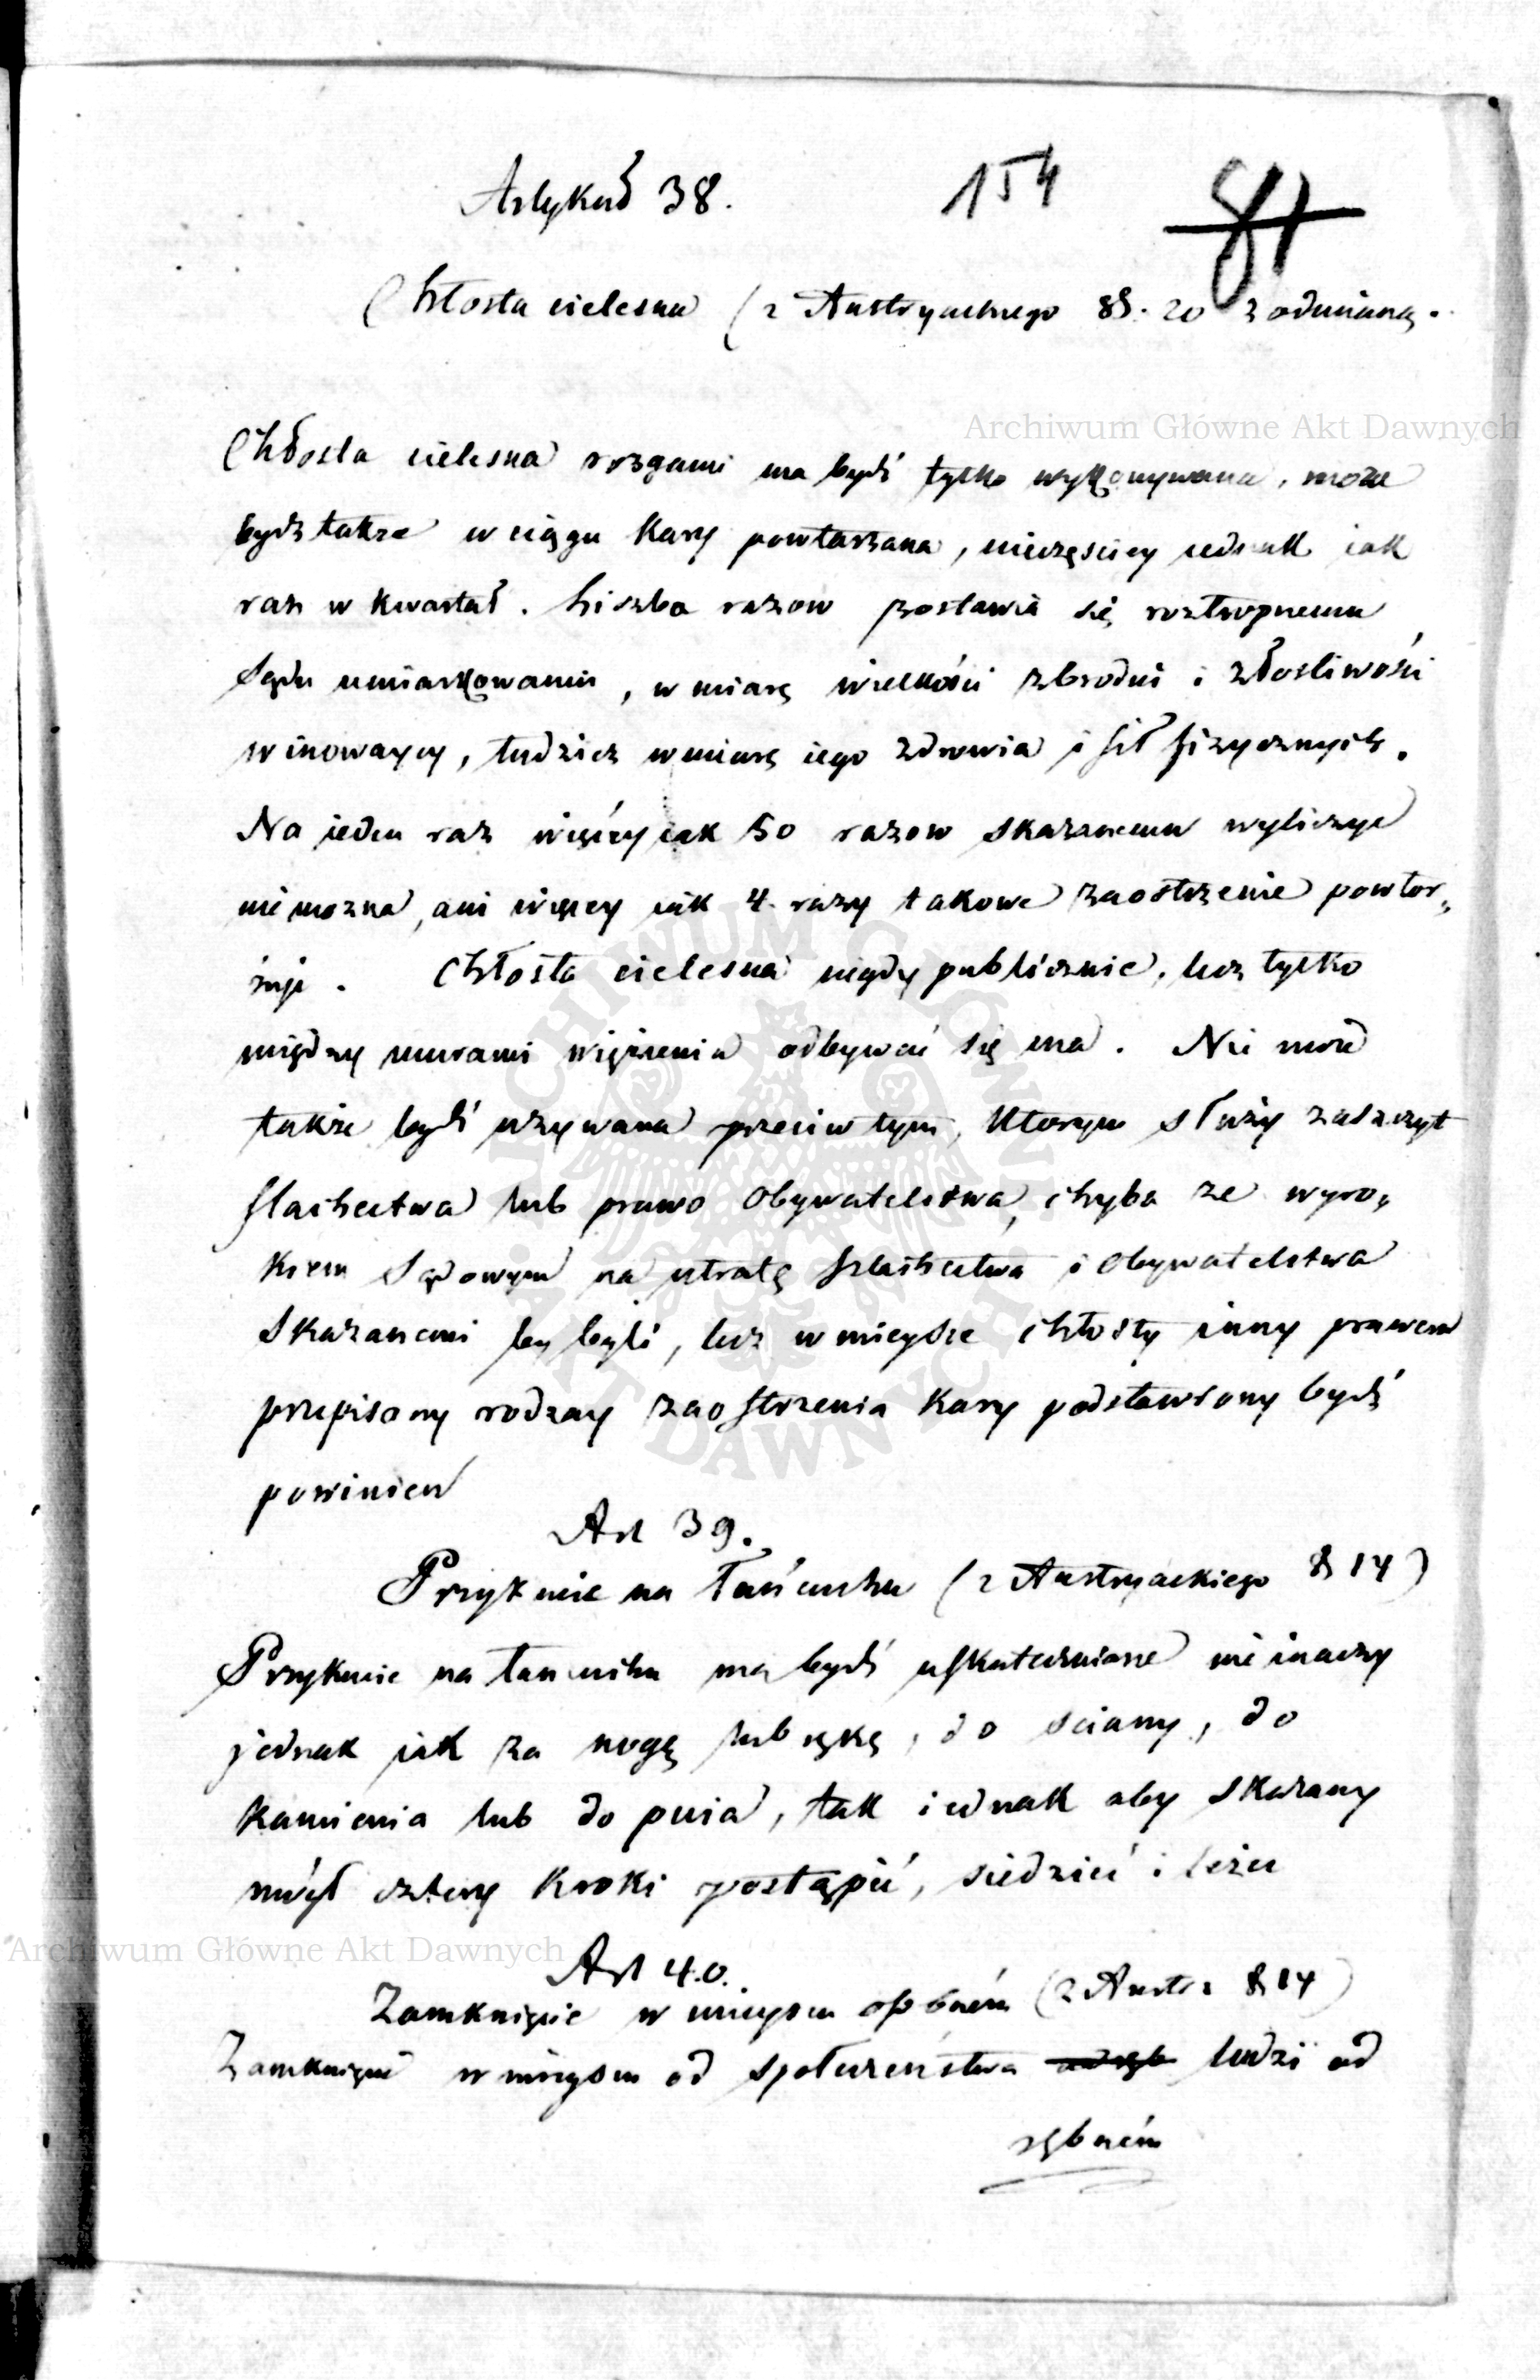 Artykuł 38.
154
81
Chłosta cielesna (z Austryackiego §§. 20 z odmianą.
Chłosta cielesna rozgami ma bydź tylko wykonywana, może
bydz także w ciągu Kary powtarzana, nieczęsciey iednak iak
raz w Kwartał. Liczba razow zostawia się roztropnemu
Sądu umiarkowaniu, w miarę wielkości zbrodni i złosliwości
winowaycy, tudzież w miarę iego zdrowia i sił fizycznych.
Na ieden raz więcéy iak 50 razow skazanemu wyliczyć
nie mozna, ani więcey iak 4. razy takowe zaostrzenie powtor,
Chłosta cielesna nigdy publicznie, lecz tylko
między murami więzienia odbywać się ma. Nie może
także bydź uzywana przeciw tym, Ktorym służy zaszczyt
slachectwa lub prawo Obywatelstwa, chyba ze wyro,
Kiem Sądowym na utratę szlachectwa i Obywatelstwa
Skazanemi by byli, lecz w mieysce chłosty inny prawem
przepisany rodzay zaostrzenia Kary podstawiony bydź
powinien
Art 39.
Przykucie na Łańcuchu (z Austryackiego § 14)
Przykucie na łancuchu ma bydź uskutecznione nie inaczy
jednak iak za nogę lub rękę, do sciany, do
Kamienia lub do pnia, tak iednak aby Skazany
mógł cztery Kroki postąpić, siedzieć i leżec
Art 40.
Zamknięcie w mieyscu osobném (z Austr: § 14)
Zamknięcie w mieyscu od społeczeństwa ludzi od
rębném
Archiwum Główne Akt Dawnych
Archiwum Główne Akt Dawnych
ARCHIWUM GŁÓWNE AKT DAWNYCH